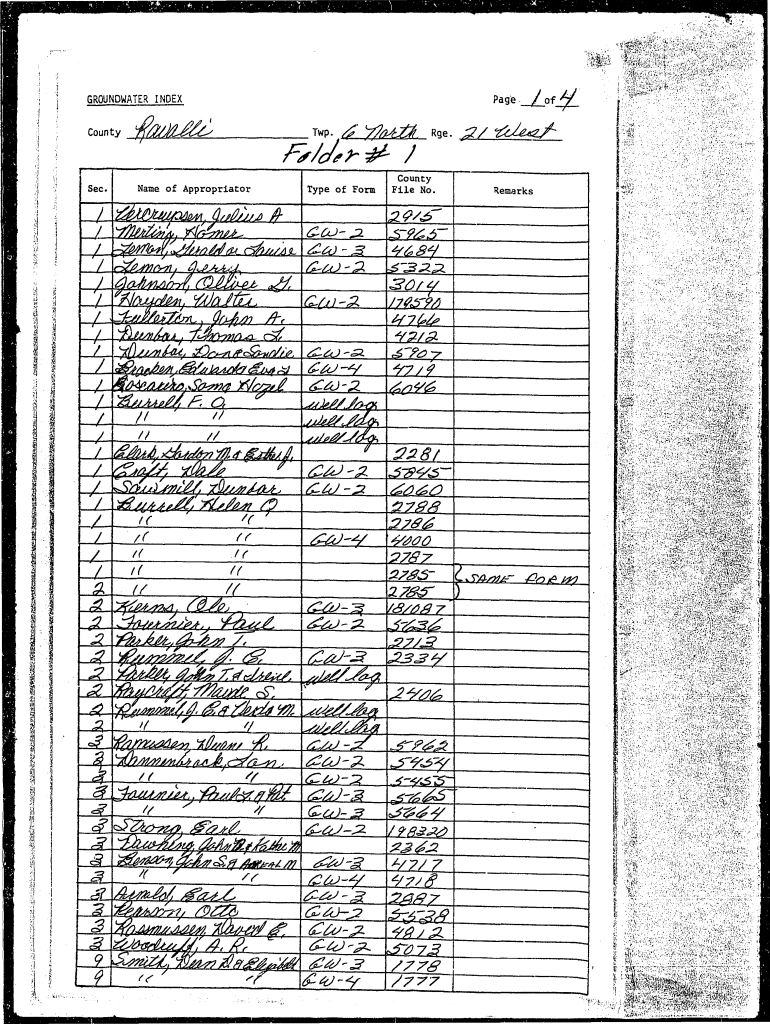 GROUNDWATER INDEX Page 1 of 4
County Ravalli Twp. 6 North Rge. 21 West
Folder # 1
Sec. Name of Appropriator Type of Form County File No. Remarks
1 Julius A 2915
1 Merting, Homer GW-2 5965
1 Lemon, Gerald or Louise GW-3 4684
1 Lemon, Jerry GW-2 5322
1 Johnson, Oliver G. 3014
1 Hayden, Walter GW-2 178590
1 Fullerton, John A. 4766
1 Dunbar, Thomas L. 4212
1 Dunbar, Don & Sandie GW-2 5907
1 Bracken, Edward & Eva GW-4 4719
1 Hazel GW-2 6046
1 Burrell, F. O. well log
1 " " well log
1 " " well log
1 Clark, Gordon M. & Esther J. 2281
1 Craft, Dale GW-2 5845
1 Sawmill, Dunbar GW-2 6060
1 Burrell, Helen O 2788
1 " " 2786
1 " " GW-4 4000
1 " " 2787
1 " " 2785 } SAME FORM
2 " " 2785
2 Kierns, Ole GW-3 181087
2 Fournier, Paul GW-2 5636
2 Parker, John T. 2713
2 Rummel, J. E. GW-3 2334
2 Parker, John T. & Irene well log
2 Raycraft, Maude S. 2406
2 Rummel, J. E. & Verda M. well log
2 " " well log
3 Ramussen, Duane R. GW-2 5962
3 Dannenbrack, Lon GW-2 5454
3 " " GW-2 5455
3 Fournier, Paul L. & Pat GW-3 5665
3 " " GW-3 5664
3 Strong, Earl GW-2 198320
3 Hawking, John 2362
3 Benson, John S. & M GW-3 4717
3 " " GW-4 4718
3 Arnold, Earl GW-3 2987
3 Pearson, Otto GW-2 5538
3 Rasmussen, David E. GW-2 4812
3 Woodruff, A. R. GW-2 5073
9 Smith, Dean D. & Elizabeth GW-3 1778
9 " " GW-4 1777